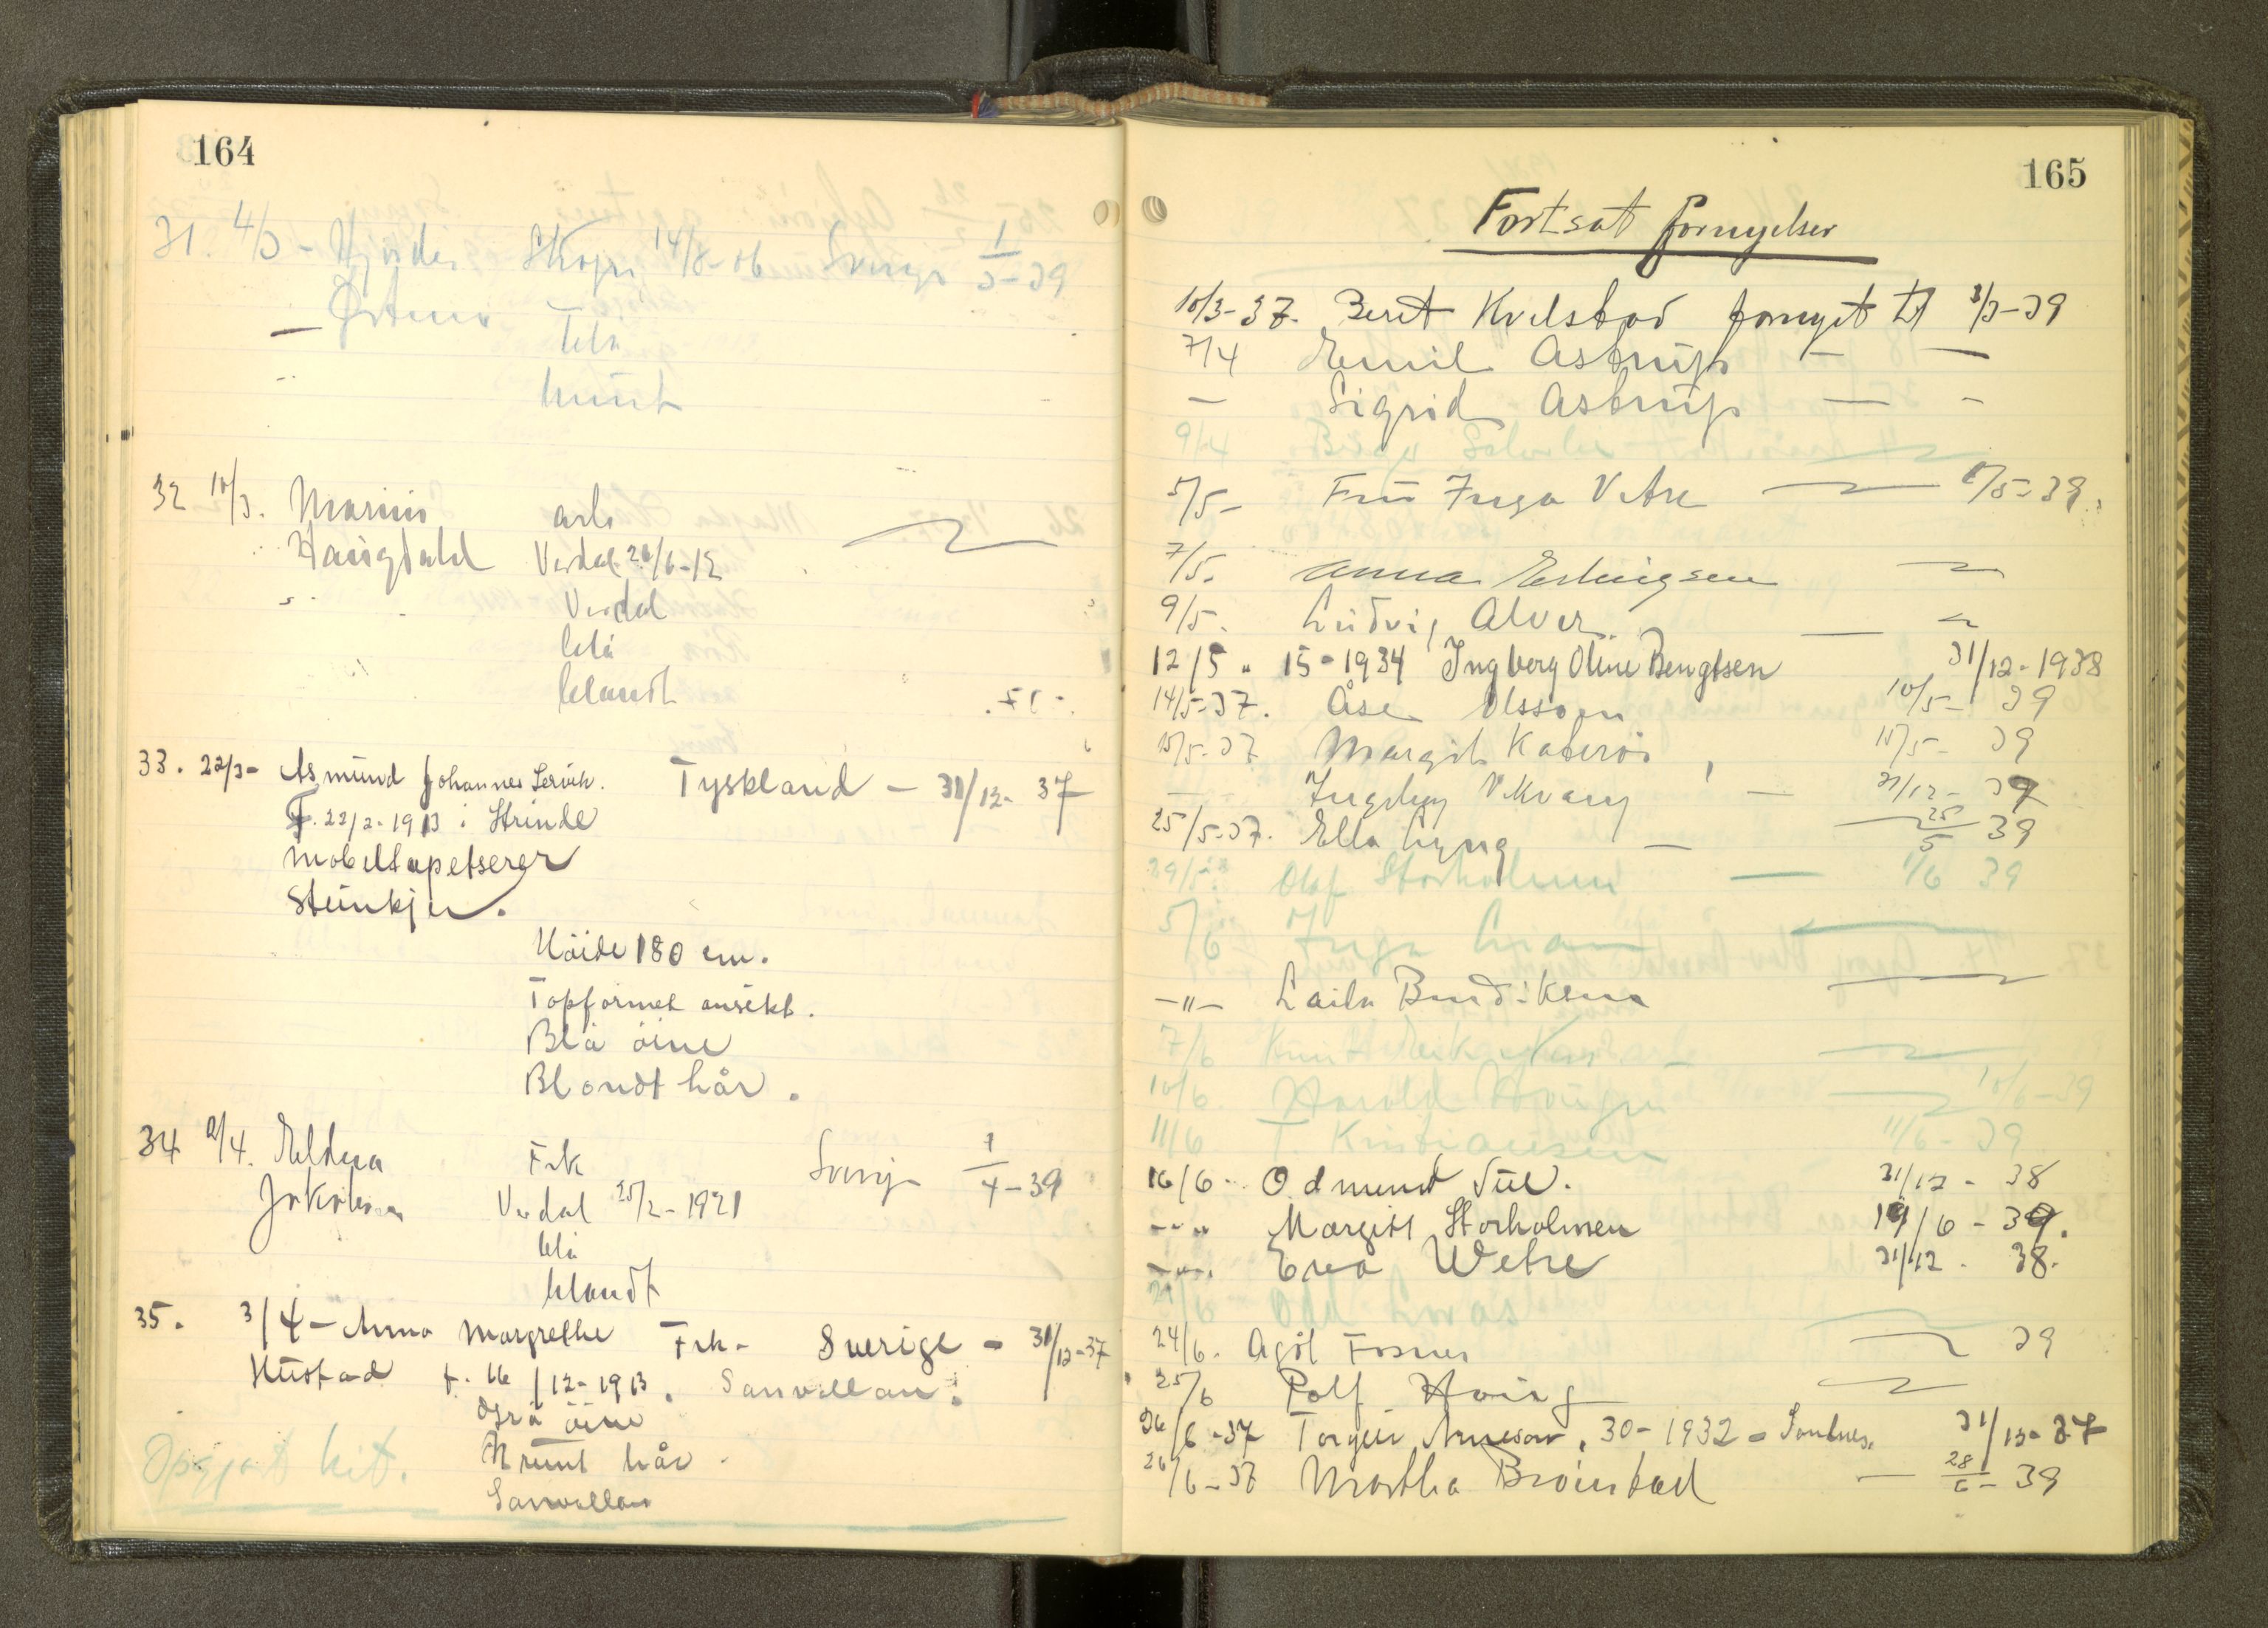 164
31. 4/3 - Hjørdis Skogn 14/8-06 Sverige 1/3-39
blå
brunt
32 10/3. Marius arb
Haugdahl Verdal 26/6-12
Verdal
blå
blandt
33. 22/3- Asmund Johannes Lervik. Tyskland - 31/12- 37
F. 22/2-1913 i Strinde
møbeltapetserer
Steinkjer.
Höide 180 cm.
Topformet ansikt.
Blå öine
Blondt hår.
34 2/4. Frk Sverige 1/4-39
Jakobsen Verdal 25/2-1921
blå
blandt
35. 3/4- Anna Margrethe Frk- Sverige - 31/12-37
Hustad f. 16/12-1913. Sanvollan.
Grå öine
Brunt hår.
Opgjort hit. Sanvollan
165
Fortsat fornyelser
10/3-37. Berit Kvelstad fornyet til 3/3-39
7/4 Emil Astrup — —
— Sigrid Astrup — —
9/4
5/5- Fru Inga Vetre 5/5-39.
7/5. Anna Erlingsen
9/5. Ludvig Alver —
12/5 " 15-1934 Ingberg Oline Bengtsen 31/12-1938
14/5-37. Åse Olsson 10/5- 39
15/5-37 Margit 15/5- 39
— Ingebg — 31/12- 39
25/5-37. Ella Lyng — 25/5 39
29/5 Olaf Storholmen — 1/6 39
5/6 Inga Lian
—"— Laila Bendiksen
7/6
10/6. Harald 10/6-39
11/6 T. Kristiansen 11/6-39
16/6- Odmund 31/12- 38
--" Margitt Storholmen 19/6-39.
--". Eva Wetre 31/12. 38.
Odd
24/6. Agöt Fosnes 39
25/6 Rolf
26/6-37 Torgeir Arneson, 30-1932 - 31/12-37
26/6-37 Martha Brönstad — 28/6-39